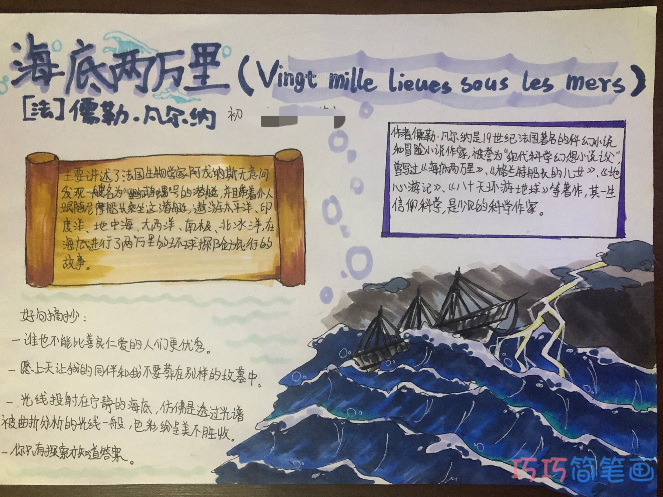 海底两万里(Vingt mille lieues sous les mers)
[法]儒勒·凡尔·纳 初
主要讲述了法国生物学家阿龙纳斯无意间
发现一艘名为"鹦鹉螺号"的潜艇,并且带着仆人
尼摩船长乘坐这潜艇,遨游太平洋、印
度洋、地中海、大西洋、南极、北冰洋,在
海底进行了两万里的环球探险旅行的
故事。
作者儒勒·凡尔纳是19世纪法国著名的科幻小说
和冒险小说作家,被誉为"现代科学幻想小说之父"
曾写过《海底两万里》、《格兰特船长的儿女》、《地
心游记》、《八十天环游地球》等著作,其一生
信仰科学,是少见的科学作家。
好句摘抄:
- 谁也不能比善良仁爱的人们更优秀。
- 愿上天让我的同伴和我不要葬在别样的坟墓中。
- 光线投射在宁静的海底,仿佛是透过光谱
被曲折分析的光线一般,色彩缤纷美不胜收。
- 你只有探索才知道答案。
巧巧简笔画